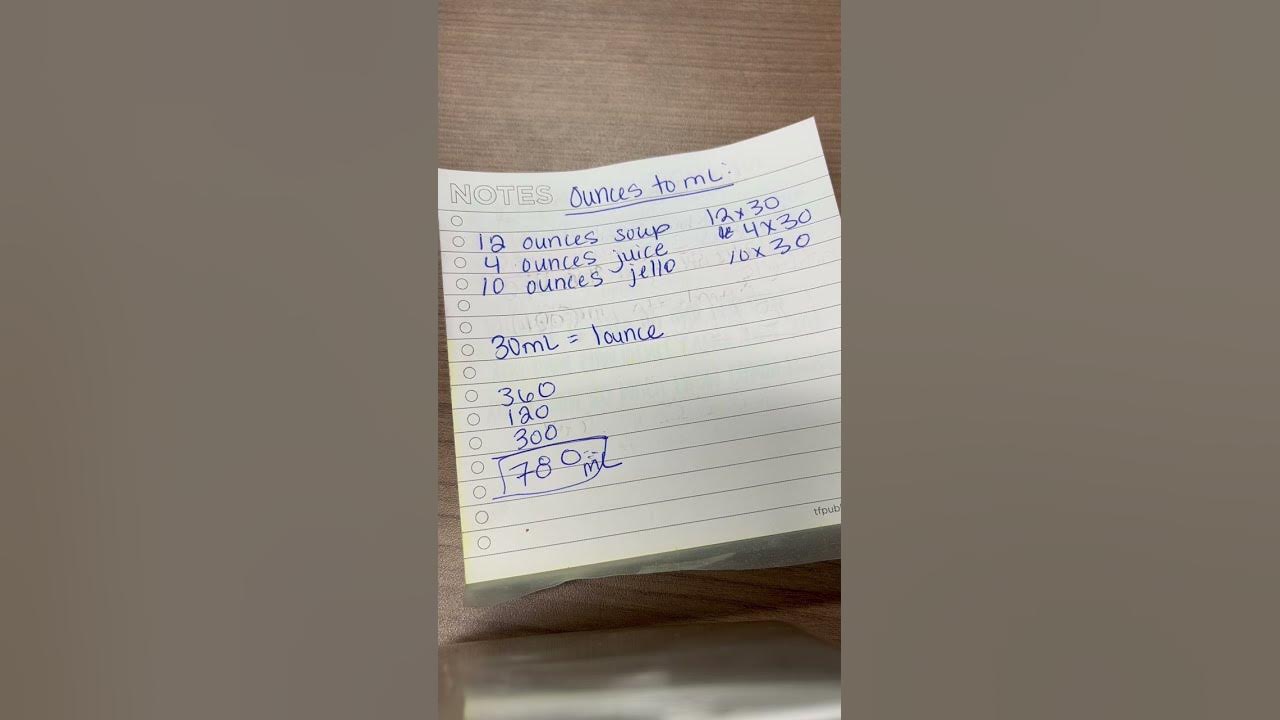 NOTES Ounces to mL:
12 ounces soup 12x30
4 ounces juice 4x30
10 ounces jello 10x30
30mL = 1ounce
360
120
300
780 mL
tfpub